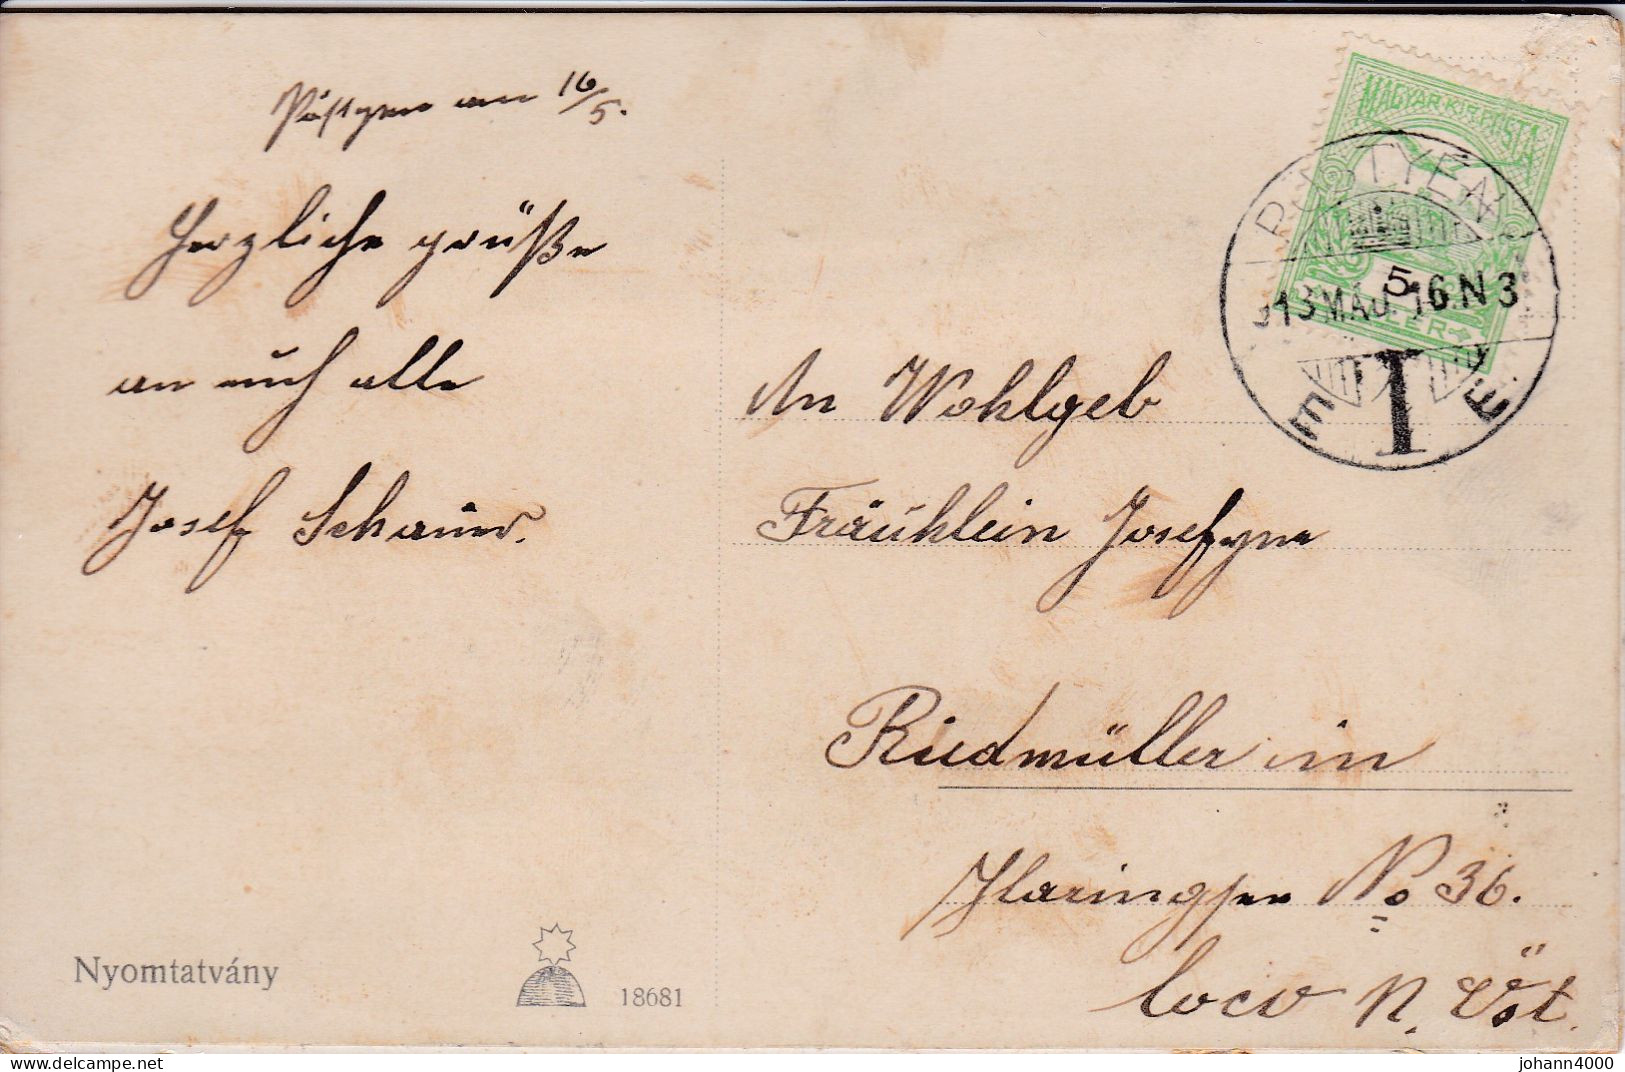 Pöstyen am 16/5.
Herzliche grüße
an euch alle
Josef
MAGYAR KIR. POSTA
PÖSTYÉN
5
913 MÁJ. 16. N 3
An Wohlgeb
Fräuhlein Josefyne
Riedmüller in
No 36.
loco N. Öst.
Nyomtatvány
18681
delcampe.net
johann4000